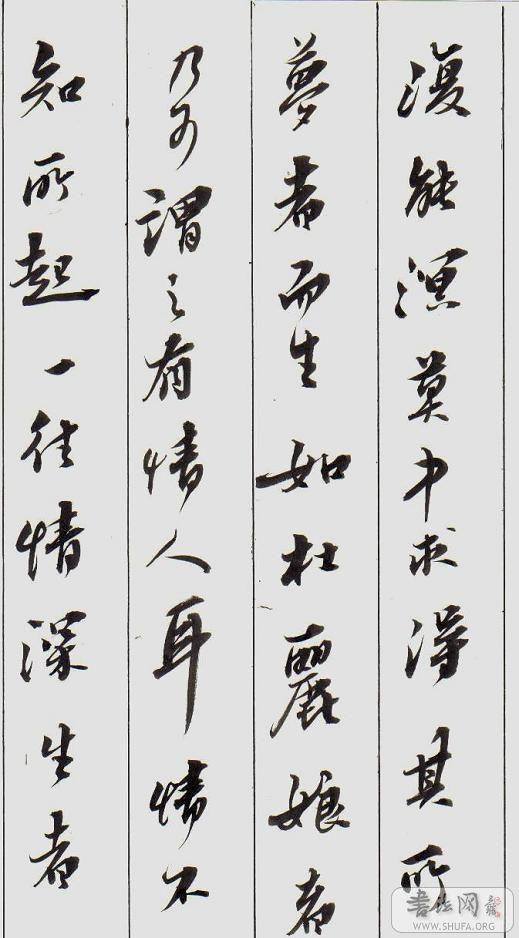 復能溟莫中求得其所
夢者而生如杜麗娘者
乃可謂之有情人耳情不
知所起一往情深生者
書法网
WWW.SHUFA.ORG